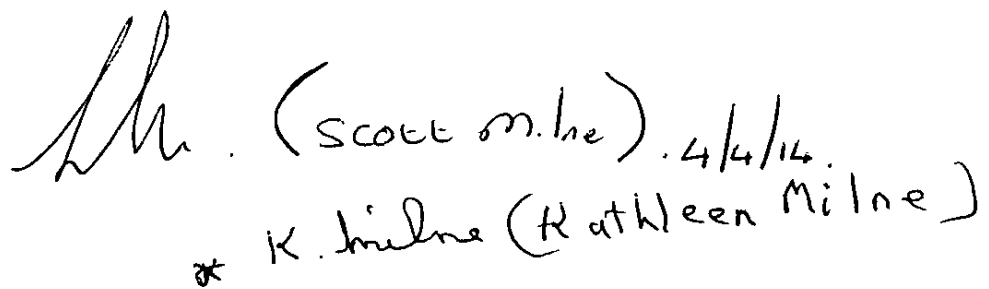 (Scott Milne). 4/4/14.
* K. Milne (Kathleen Milne)